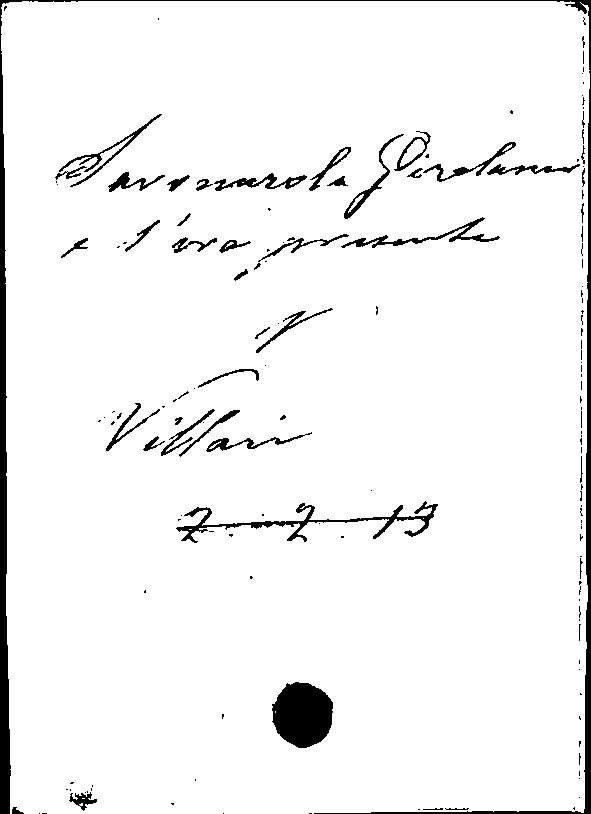 Savonarola Girolamo
e l'ora presente
V
Villari
2 - 2 13